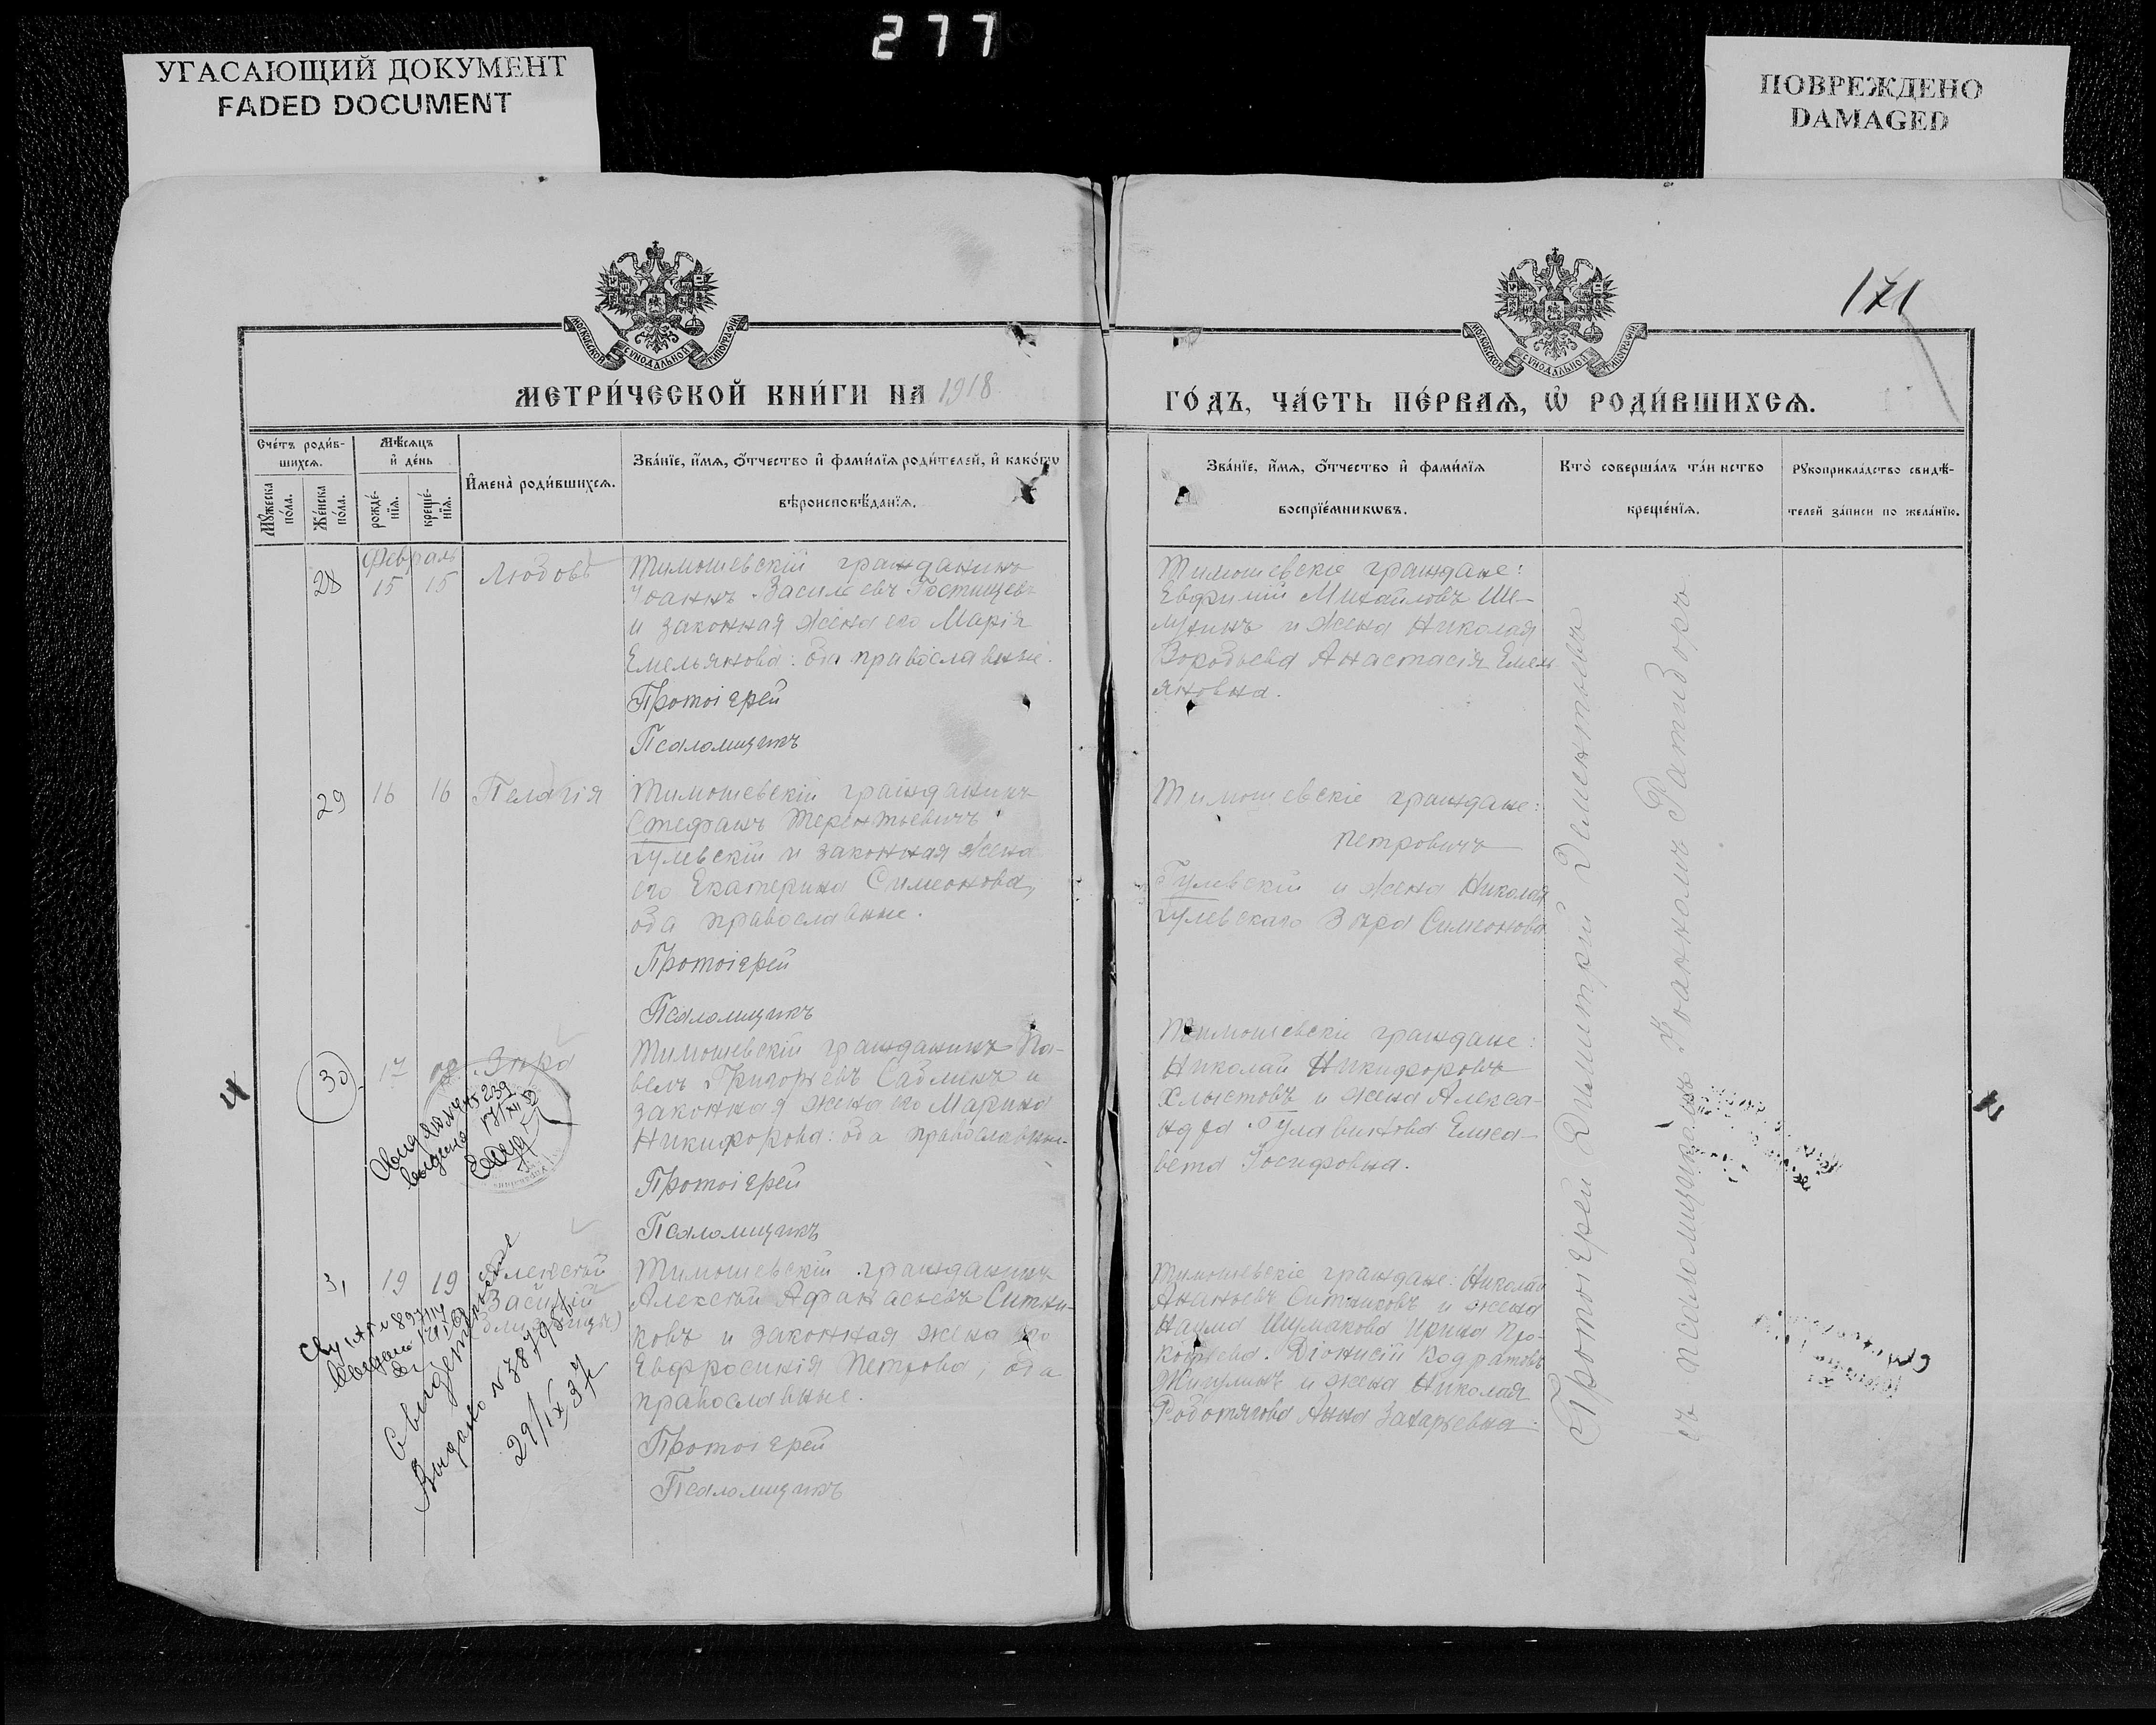 277
УГАСАЮЩИЙ ДОКУМЕНТ
FADED DOCUMENT
ПОВРЕЖДЕНО
DAMAGED
171
МОСКОВСКОЙ СѴНОДАЛЬНОЙ ТИПОГРАФІИ
МОСКОВСКОЙ СѴНОДАЛЬНОЙ ТИПОГРАФІИ
МЕТРИ́ЧЕСКОЙ КНИ́ГИ НА 1918
ГО́ДЪ, ЧА́СТЬ ПЕ́РВАѦ, Ѽ РОДИ́ВШИХСѦ.
Сче́тъ роди́в-
шихсѧ.
Мꙋ́жеска по́ла.
Же́нска по́ла.
Мѣ́сѧцъ
и҆ де́нь
рожде́-
нїѧ.
креще́-
нїѧ.
И҆мена̀ роди́вшихсѧ.
Зва́нїе, и҆́мѧ, ѻ҆́тчество и҆ фами́лїѧ роди́телей, и҆ како́гѡ
вѣроисповѣ́данїѧ.
Зва́нїе, и҆́мѧ, ѻ҆́тчество и҆ фами́лїѧ
воспрїе́мникѡвъ.
Кто̀ соверша́лъ та́инство
креще́нїѧ.
Рꙋкоприкла́дство свидѣ́-
телей за́писи по жела́нїю.
Февраль
28 15 15 Любовь
Тимошевскій гражданинъ
Іоаннъ Василіевъ Гостищевъ
и законная жена его Марія
Емельянова: оба православные.
Протоіерей
Псаломщикъ
Тимошевскіе граждане:
Евфимій Михайловъ Ше-
и жена Николая
Воробьева Анастасія Емель
яновна.
29 16 16 Пелагія
Тимошевскій гражданинъ
Стефанъ Терентьевичъ
Гулевскій и законная жена
его Екатерина Симеонова,
оба православные.
Протоіерей
Псаломщикъ
Тимошевскіе граждане:
Петровичъ
Гулевскій и жена Николая
Гулевскаго Вѣра Симеонова
30 17 Вѣра
Тимошевскій гражданинъ Па-
велъ Григорьевъ Саблинъ и
законная жена его Марина
Никифорова: оба православны-
Протоіерей
Псаломщикъ
Тимошевскіе граждане:
Николай Никифоровъ
Хлыстовъ и жена Алекса-
ндра Елиса-
вета Іосифовна.
выдано
31 19 19 Алексѣй
Василій
(близнецы)
Тимошевскій гражданинъ
Алексѣй Афанасьевъ Ситни-
ковъ и законная жена его
Евфросинія Петрова; оба
православные.
Протоіерей
Псаломщикъ
Тимошевскіе граждане: Николай
Ананьевъ Ситниковъ и жена
Наума Шумакова Ирина Про-
кофьева. Діонисій Кодратовъ
Жигулинъ и жена Николая
Работягова Анна Захарьевна.
Свидетельство
Выдано
29/IX 37
Протоіерей Димитрій Дементьевъ
съ псаломщикомъ Іоанномъ